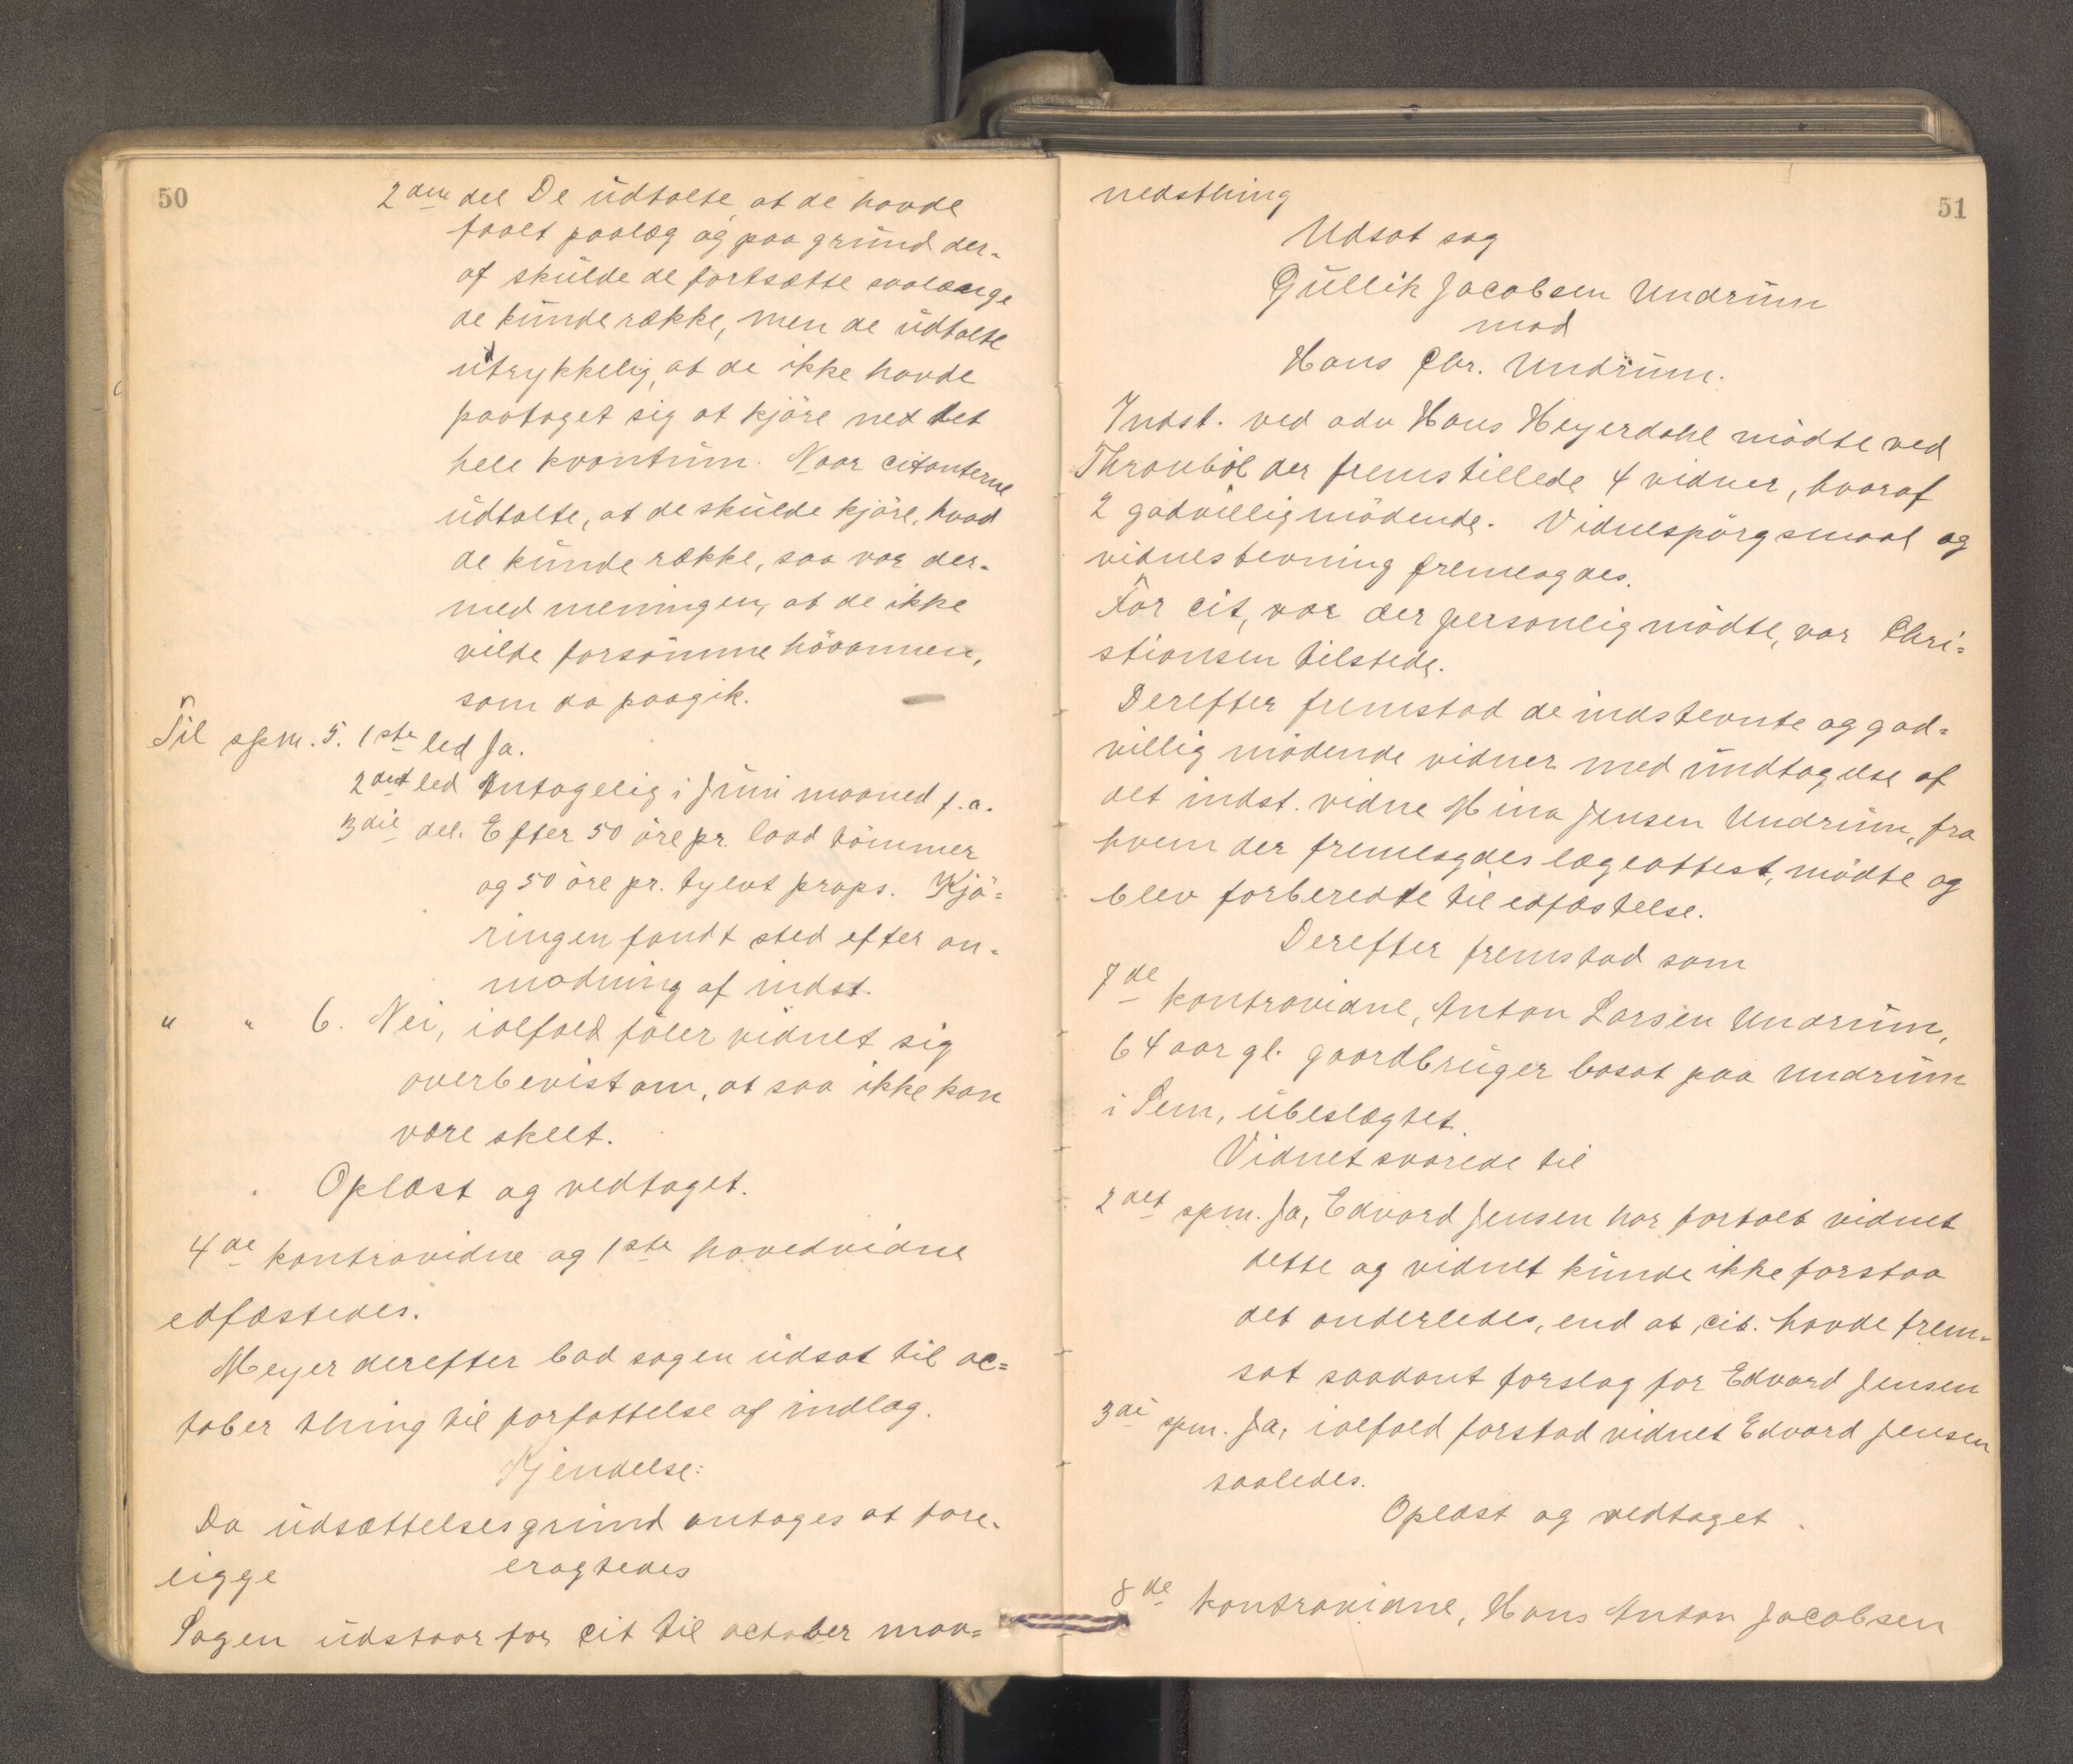 50
2den del De udtalte, at de havde
faalt paalæg og paa grund der-
af skulde de fortsætte saalænge
de kunde række, men de udtalte
udtrykkelig, at de ikke havde
paataget sig at kjöre ned det
hele kvantum. Naar citanterne
udtalte, at de skulde kjöre, hvad
de kunde række, saa var der-
med meningen, at de ikke
vilde forsömme höaannen,
som da paagik.
Til spm. 5. 1ste led Ja.
2det led Antagelig i Juni maaned f. a.
3die del. Efter 50 öre pr. laad tömmer
og 50 öre pr. tylvt props. Kjö-
ringen fandt sted efter an-
modning af indst.
" " 6. Nei, ialfald föler vidnet sig
overbevist om, at saa ikke kan
være skeet.
Oplæst og vedtaget.
4de kontravidne og 1ste hovedvidne
edfæstedes.
Meyer derefter bad sagen udsat til oc-
tober thing til forfattelse af indlæg.
Kjendelse:
Da udsættelsesgrund antages at fore-
ligge eragtedes
Sagen udstaar for cit til october maa-
51
nedsthing
Udsat sag
Gullik Jacobsen Undrum
mod
Hans Chr. Undrum.
Indst. ved adv Hans Heyerdahl mödte ved
Thronböl der fremstillede 4 vidner, hvoraf
2 godvillig mödende. Vidnespörgsmaal og
vidnestevning fremlagdes.
For cit, var der personlig mödte, var Chri-
stiansen tilstede.
Derefter fremstod de indstevnte og god-
villig mödende vidner med undtagelse af
det indst. vidne Mina Jensen Undrum, fra
hvem der fremlagdes lægeattest, mödte og
blev forberedte til edfæstelse.
Derefter fremstod som
7de kontravidne, Anton Larsen Undrum,
64 aar gl. gaardbruger bosat paa Undrum
i Sem, ubeslægtet.
Vidnet svarede til
2det spm. Ja, Edvard Jensen har fortalt vidnet
dette og vidnet kunde ikke forstaa
det anderledes, end at cit. havde frem-
sat saadant forslag for Edvard Jensen
3die spm. Ja, ialfald forstod vidnet Edvard Jensen
saaledes.
Oplæst og vedtaget
8de kontravidne, Hans Anton Jacobsen